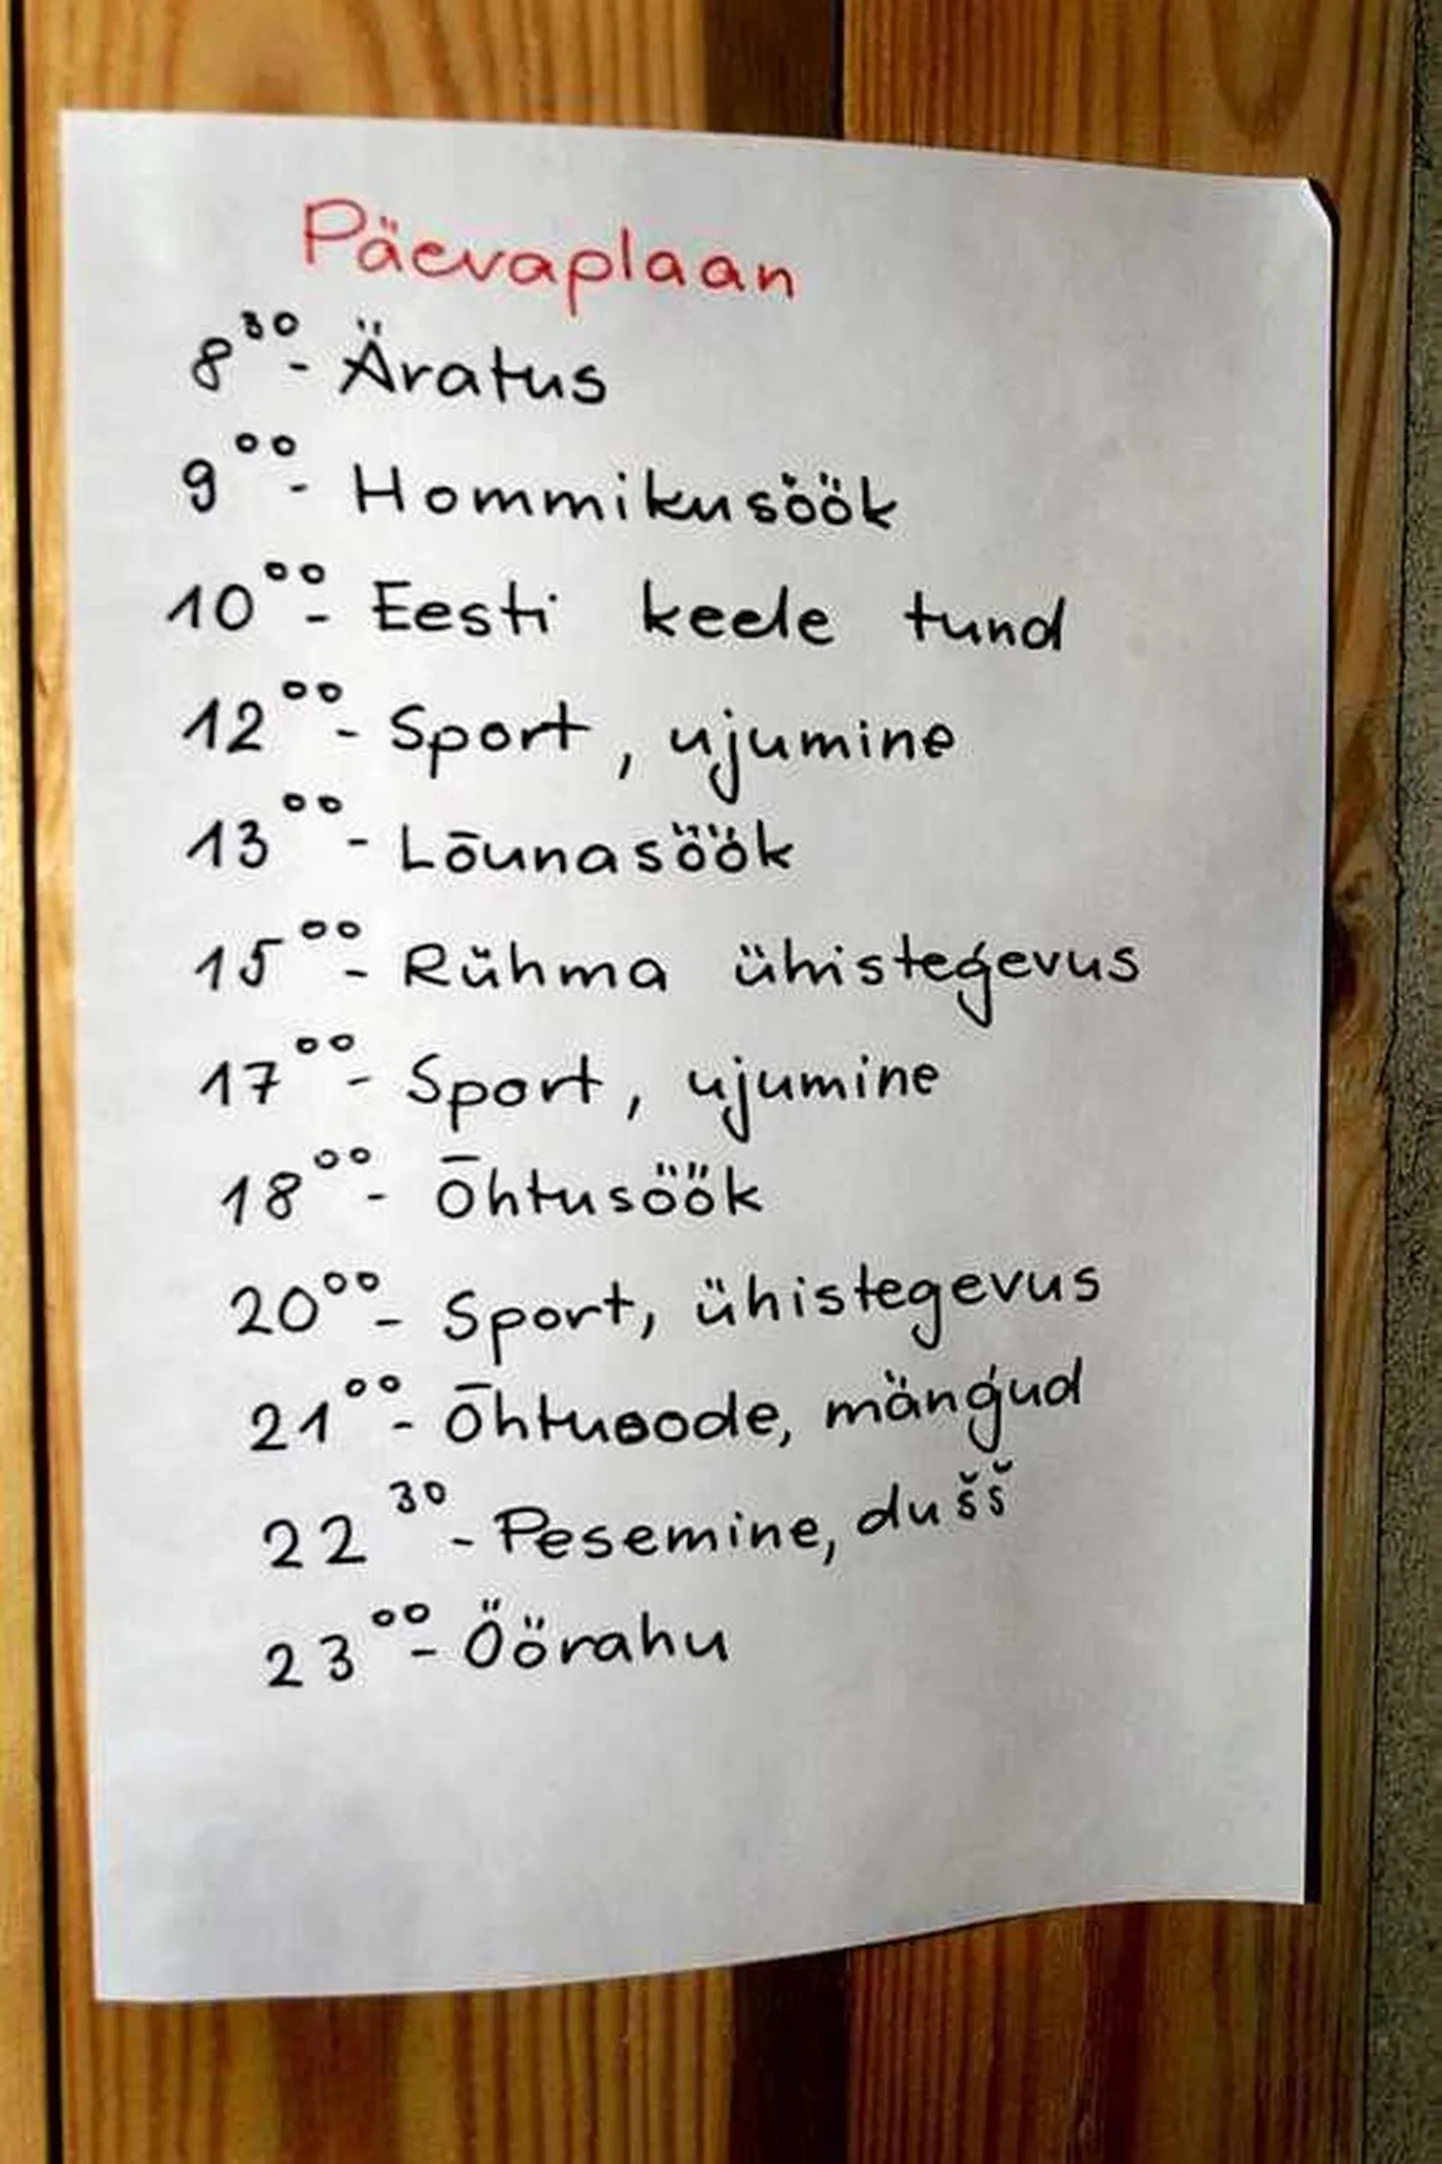 Päevaplaan
8³⁰- Äratus
9⁰⁰- Hommikusöök
10⁰⁰- Eesti keele tund
12⁰⁰- Sport, ujumine
13⁰⁰- Lõunasöök
15⁰⁰- Rühma ühistegevus
17⁰⁰- Sport, ujumine
18⁰⁰- Õhtusöök
20⁰⁰- Sport, ühistegevus
21⁰⁰- Õhtuoode, mängud
22³⁰- Pesemine, dušš
23⁰⁰- Öörahu